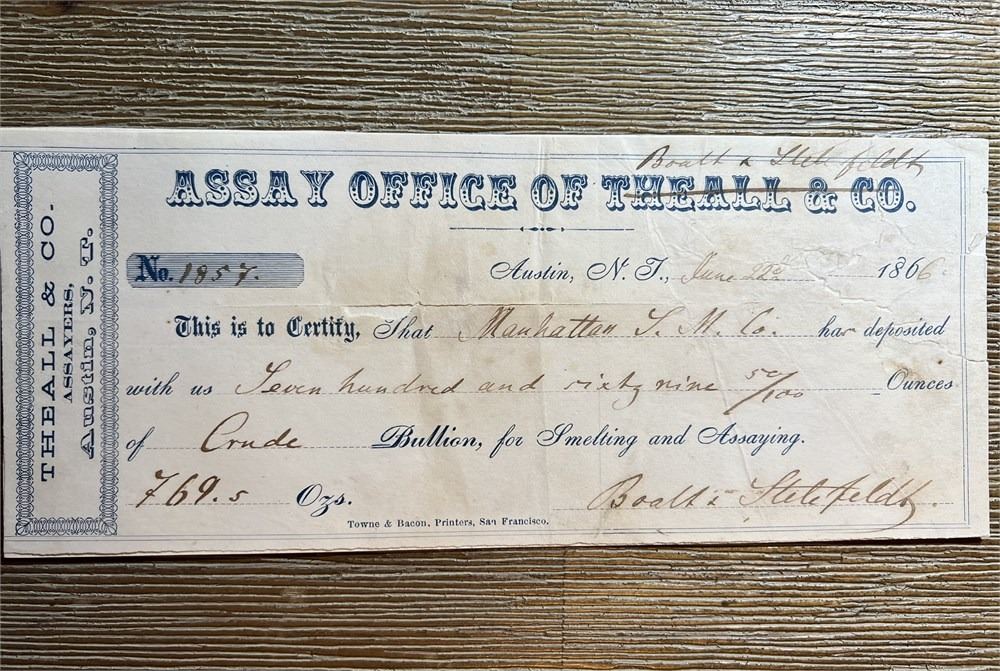 Boalt & Stetefeldt
ASSAY OFFICE OF THEALL & CO.
THEALL & CO.
ASSAYERS,
Austin, N. T.
No. 1857.
Austin, N. T., June 22d 1866.
This is to Certify, That Manhattan S. M. Co. has deposited
with us Seven hundred and sixty nine 50/100 Ounces
of Crude Bullion, for Smelting and Assaying.
769.5 Ozs. Boalt & Stetefeldt.
Towne & Bacon, Printers, San Francisco.